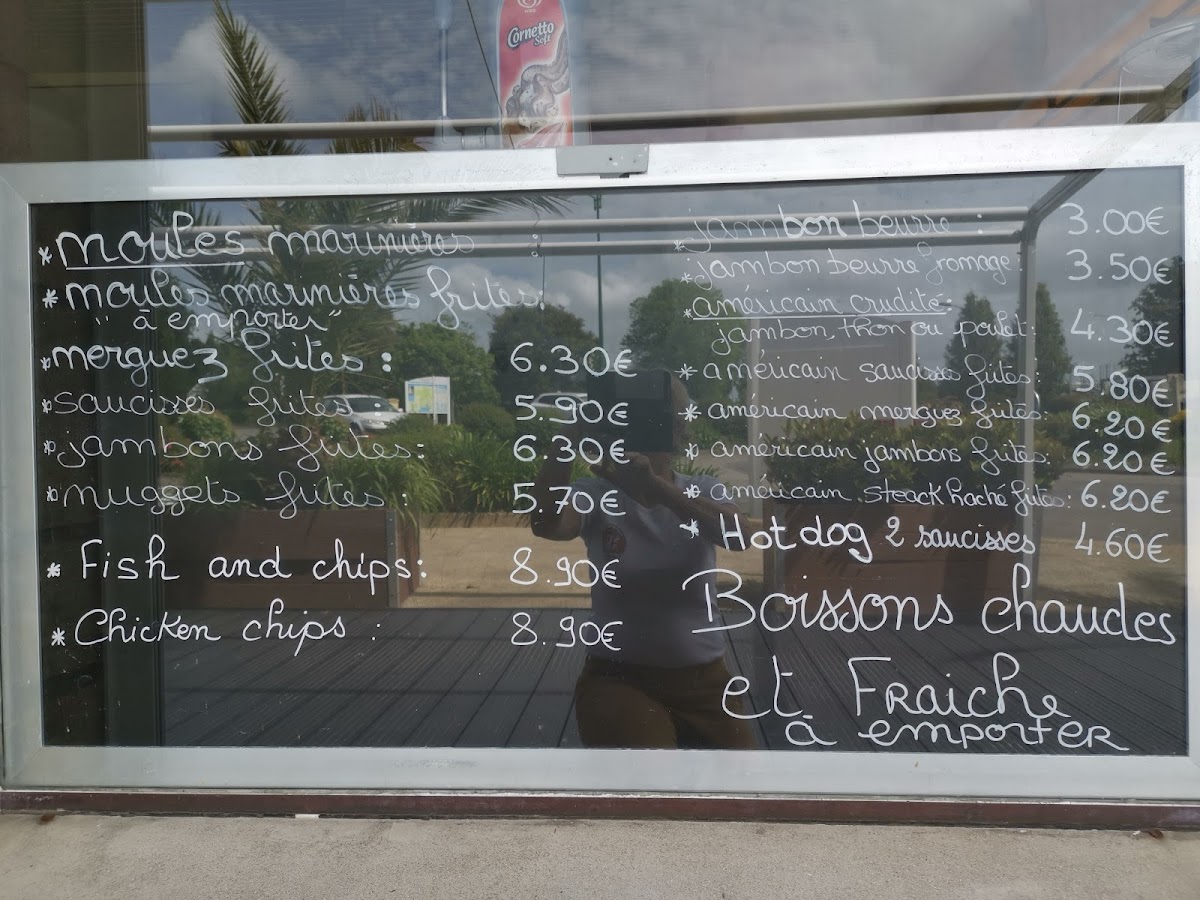 Cornetto
Soft
* moules marinières :
* moules marinières frites :
"à emporter"
* merguez frites : 6.30€
* saucisses frites 5.90€
* jambons frites : 6.30€
* nuggets frites : 5.70€
* Fish and chips : 8.90€
* Chicken chips : 8.90€
* jambon beurre : 3.00€
* jambon beurre fromage : 3.50€
* américain crudité
jambon, thon ou poulet : 4.30€
* américain saucisse frites : 5.80€
* américain merguez frites : 6.20€
* américain jambons frites : 6.20€
* américain steack haché frites : 6.20€
* Hot dog 2 saucisses 4.60€
Boissons chaudes
et Fraiche
à emporter